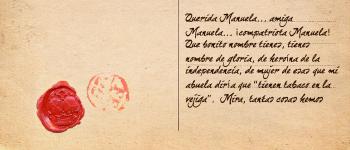 Querida Manuela... amiga
Manuela... ¡compatriota Manuela!
Que bonito nombre tienes, tienes
nombre de gloria, de heroína de la
independencia, de mujer de esas que mi
abuela diría que "tienen tabaco en la
vejiga". Mira, tantas cosas hemos